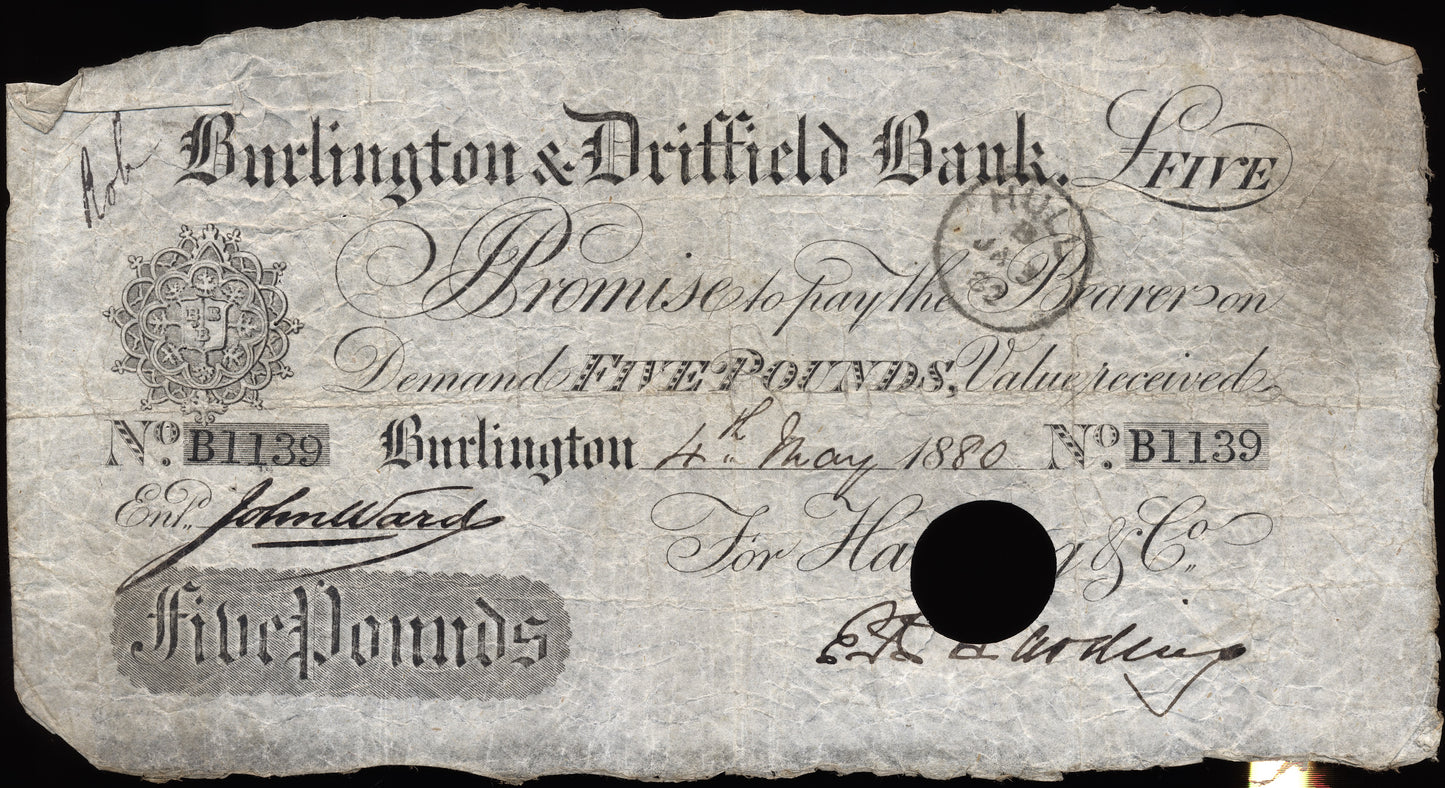 Rob
Burlington & Driffield Bank. £FIVE
HULL
B
JA 9
82
I Promise to pay the Bearer on
Demand FIVE POUNDS, Value received
BSB
No. B1139 Burlington 4th May 1880 No. B1139
Entd. John Ward
For Ha g & Co.
Five Pounds
Harding